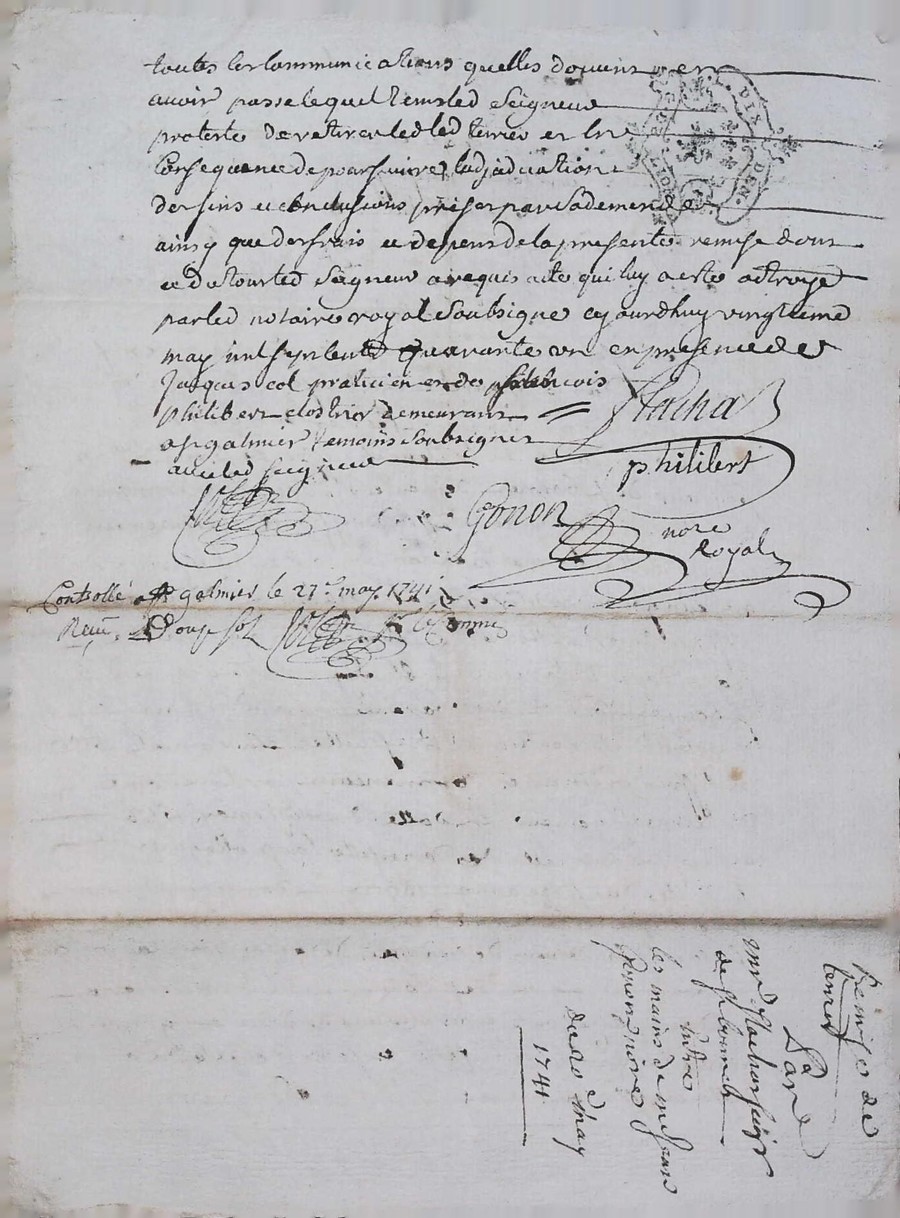 toutes les Communications quelles doivent en
avoir passe lequel tems led Seigneur
proteste de retirer led terrier et en
Consequence de poursuivre ladjudication
des fins et conclusions prises par sa demende
ainsy que des frais et depens de la presente remise dont
et de tout led Seigneur a requis acte qui luy a este octroyé
par led notaire royal Soubsigné ce jourdhuy vingtieme
may mil sept cent quarante un en presence de
Jacques col praticien et de françois
philibert clostrier demeurans
a St galmier temoins Soubsignes
avec led seigneur
Flachat
philibert
Gonon
nore
Royal
Controllé a St galmier le 21e may 1741
Receu Douze sol
Remise de
terrier
Par
mr Flachat seigr
de St bonnet
entre
les mains de me
Gonon nore
du 20e may
1741